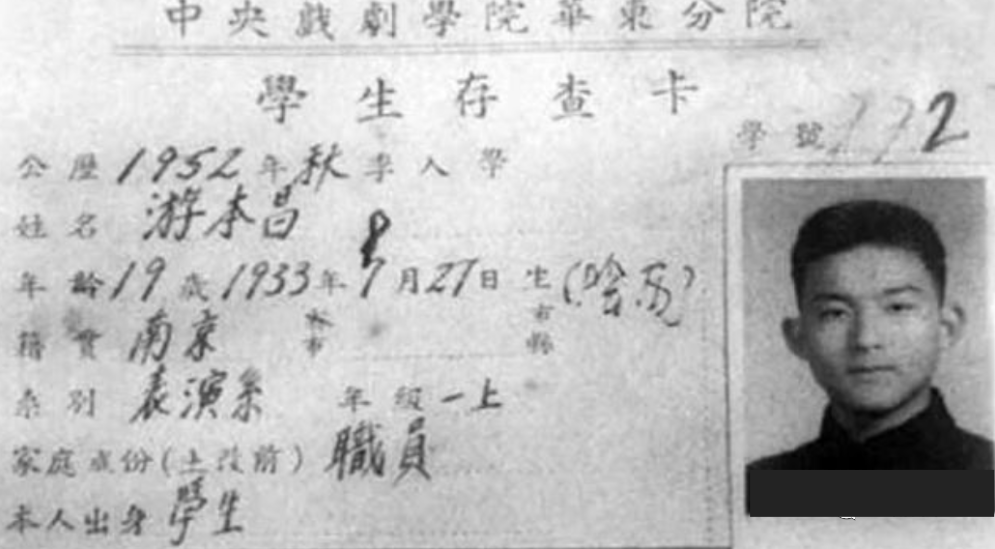 中央戲劇學院華東分院
學生存查卡
學號 172
公歷1952年秋季入學
姓名 游本昌
年齡19歲1933年8月27日生(陰历)
籍貫 南京 市縣
系別 表演系 年級 一上
家庭成份(土改前) 職員
本人出身 學生